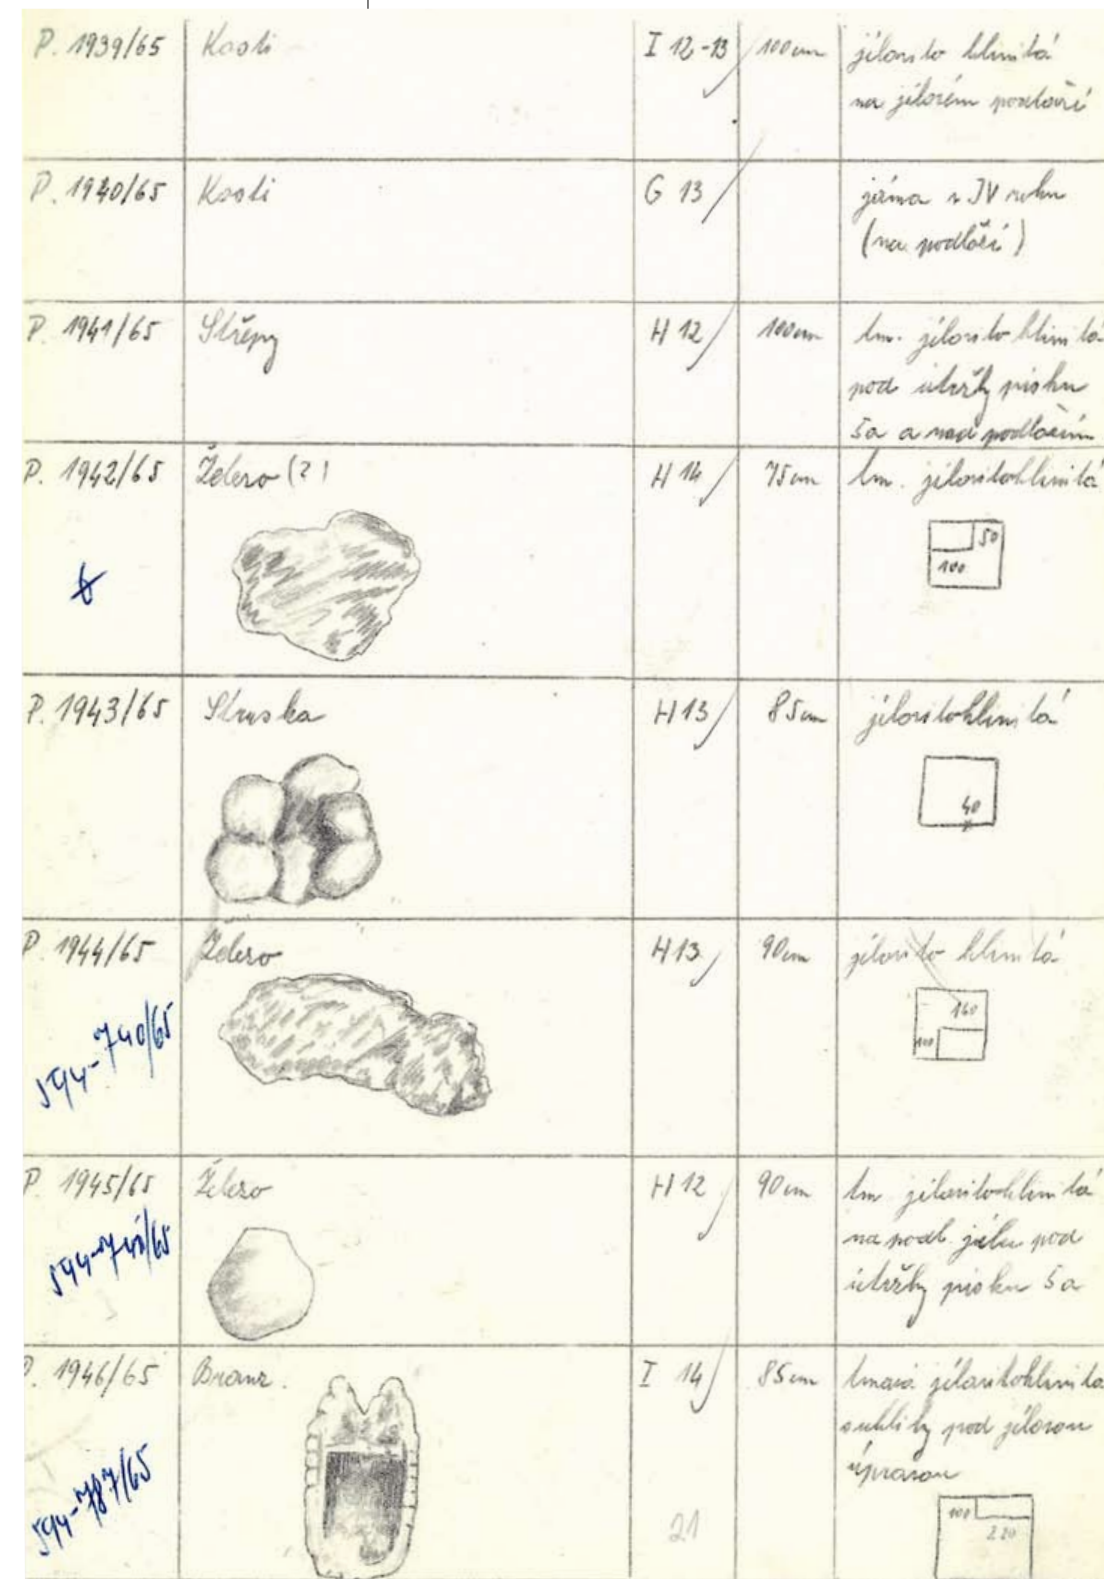 P. 1939/65 Kosti I 12-13 100cm jílovito hlinitá
na jílovém podloží
P. 1940/65 Kosti G 13 jáma v JV rohu
(na podloží)
P. 1941/65 Střepy H 12 100cm tm. jílovito hlinitá
pod útržky písku
5a a nad podložím
P. 1942/65 Železo (?) H 14 75cm tm. jílovitohlinitá
50
100
P. 1943/65 Struska H 13 85cm jílovitohlinitá
40
P. 1944/65 Železo H 13 90cm jílovito hlinitá
594-740/65
160
100
P. 1945/65 Železo H 12 90cm tm jílovitohlinitá
na podl. jílu pod
útržky písku 5a
P. 1946/65 Bronz. I 14 85cm tmavá jílovitohlinitá
s uhlíky pod jílovou
úpravou
594-787/65
100
220
21